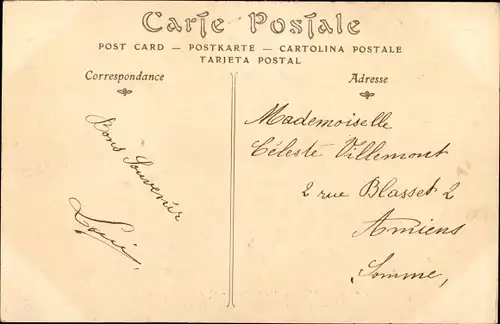 Carte Postale
POST CARD — POSTKARTE — CARTOLINA POSTALE
TARJETA POSTAL
Correspondance
Adresse
Bons Souvenir
Mademoiselle
Céleste Villemont
2 rue Blasset 2
Amiens
Somme,